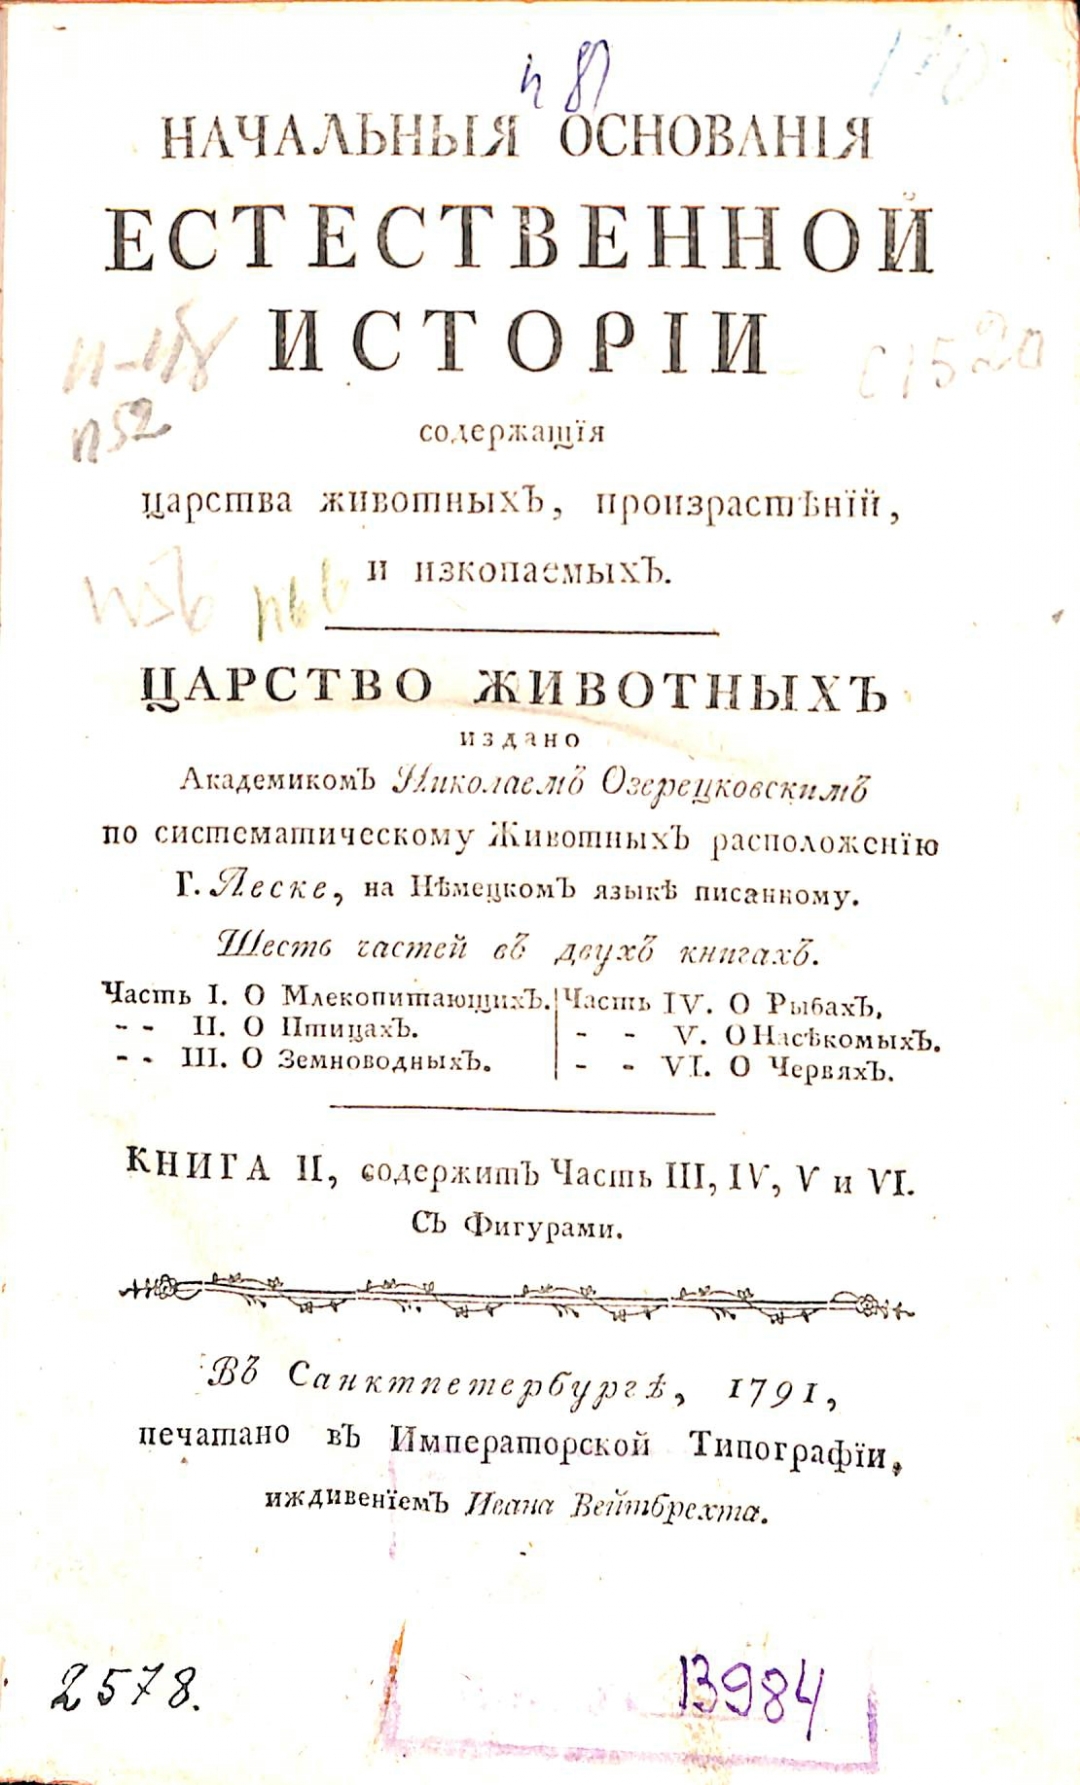 и 81
НАЧАЛЬНЫЯ ОСНОВАНІЯ
ЕСТЕСТВЕННОЙ
ИСТОРІИ
п52
содержащїя
царства животныхЪ, произрастѣнїй,
и изкопаемыхЪ.
ЦАРСТВО ЖИВОТНЫХЪ
издано
АкадемикомЪ Николаемъ Озерецковскимъ
по систематическому ЖивотныхЪ расположенїю
Г. Леске, на НѣмецкомЪ языкѣ писанному.
Шесть частей въ двухъ книгахъ.
Часть I. О МлекопитающихЪ.
-- II. О ПтицахЪ.
-- III. О ЗемноводныхЪ.
Часть IV. О РыбахЪ.
- - V. О НасѣкомыхЪ.
- - VI. О ЧервяхЪ.
КНИГА II, содержитЪ Часть III, IV, V и VI.
СЪ Фигурами.
Въ Санктпетербургѣ, 1791,
печатано вЪ Императорской Типографїи,
иждивенїемЪ Ивана Вейтбрехта.
2578.
13984